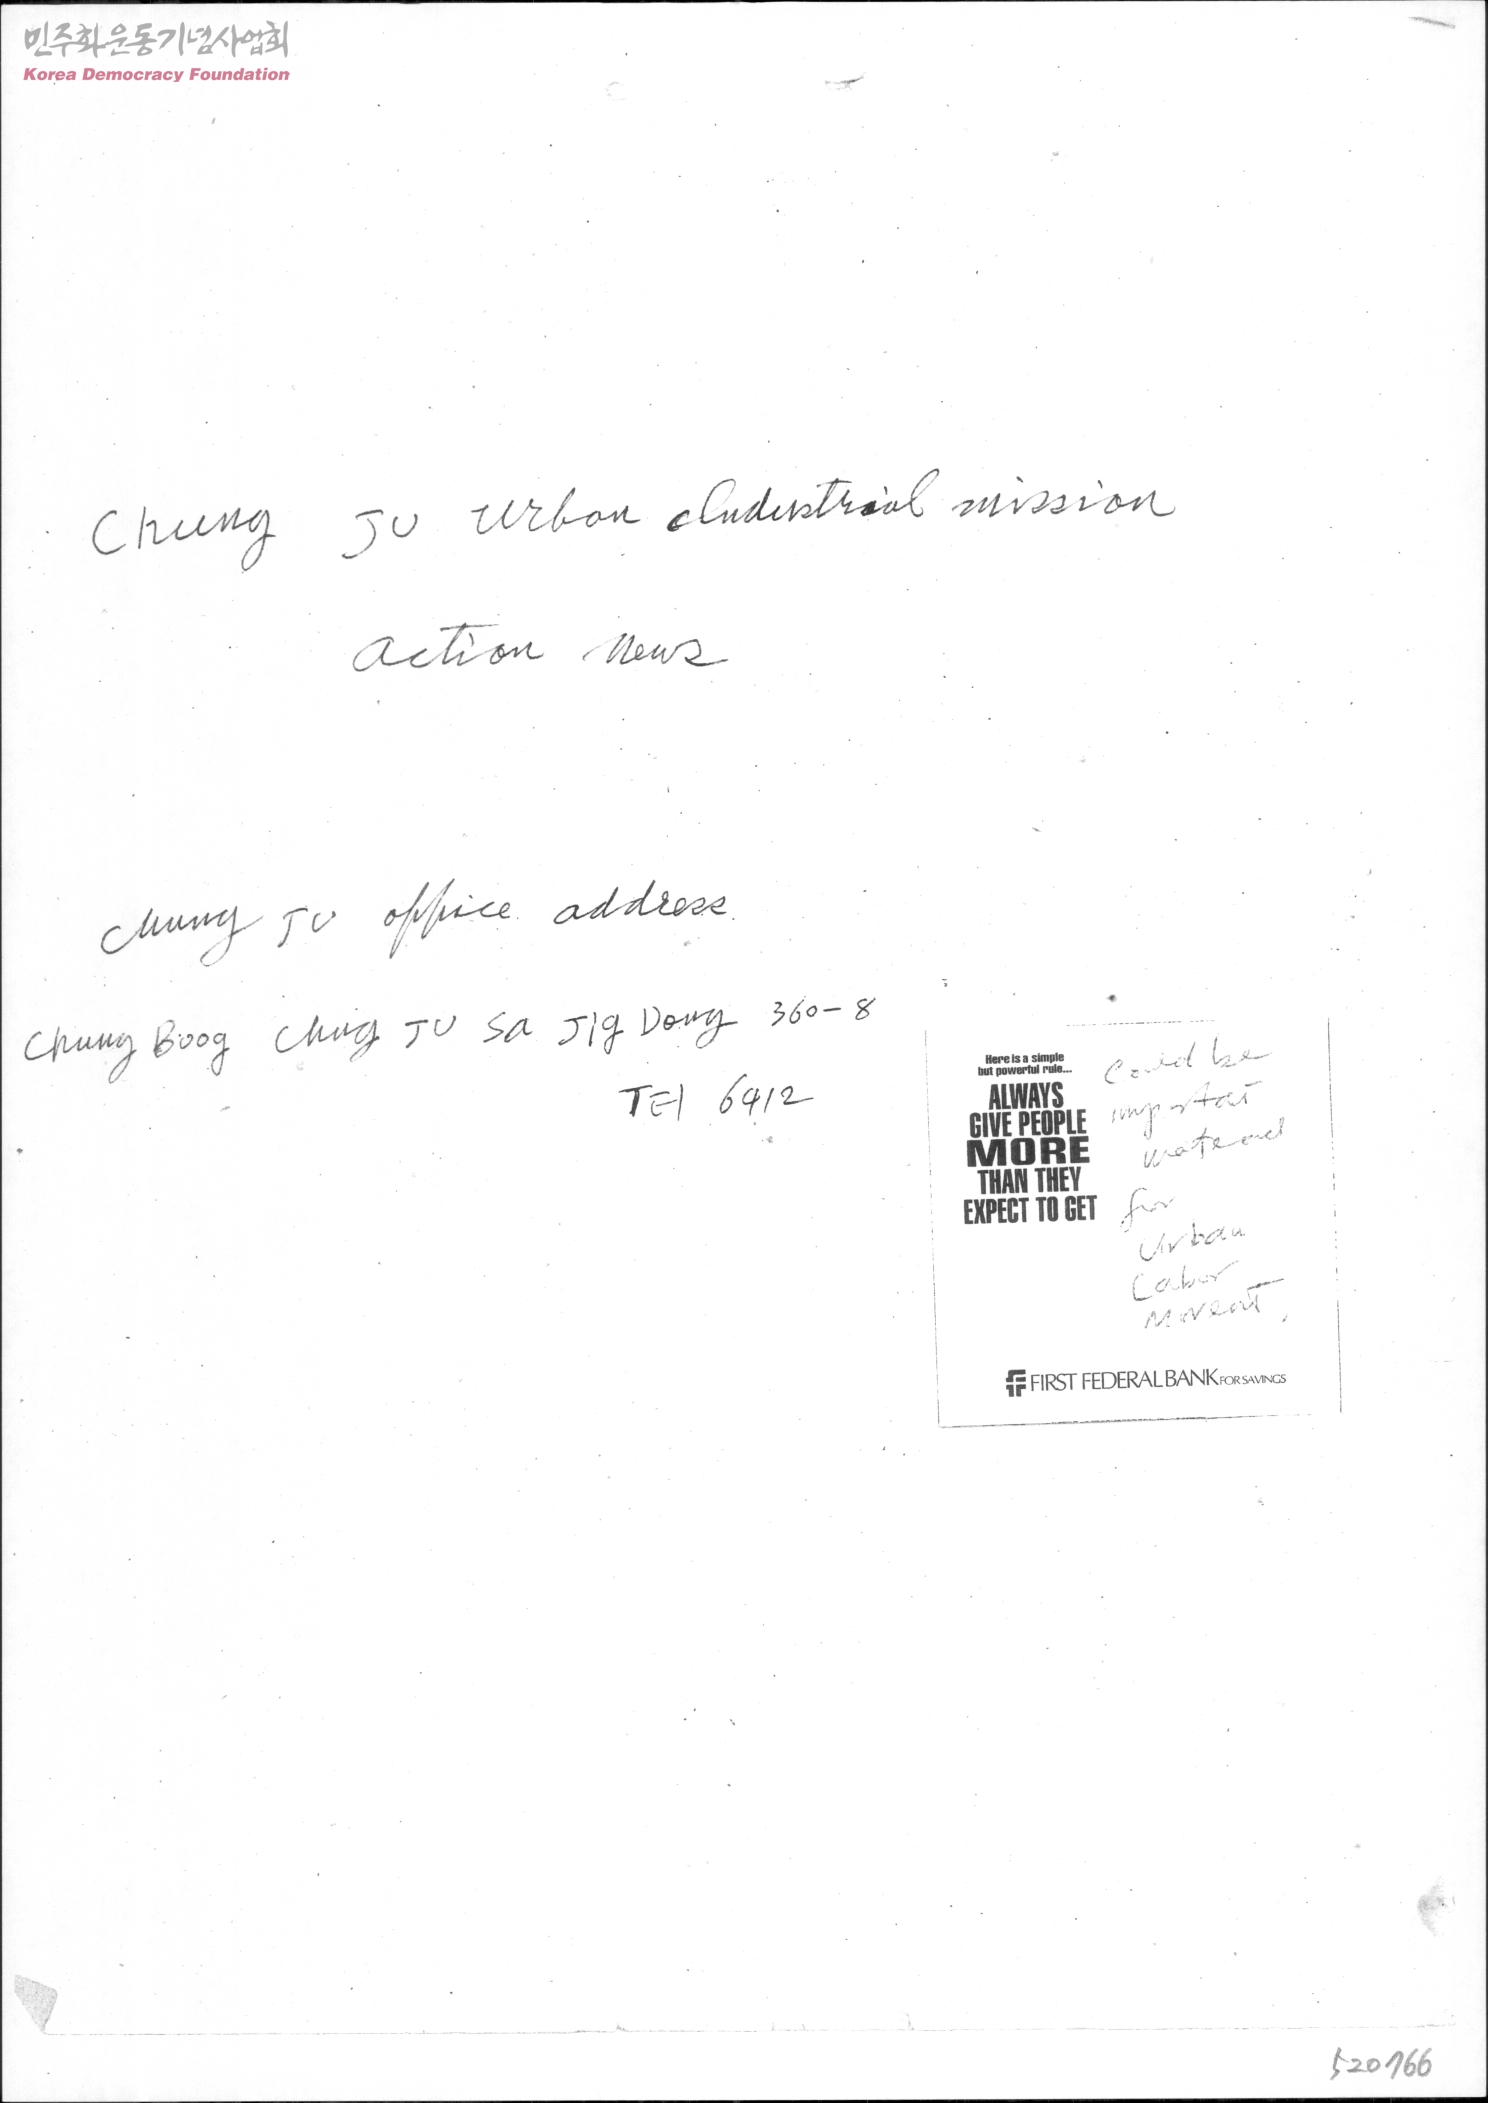 민주화운동기념사업회
Korea Democracy Foundation
Chung JU Urban Industrial mission
action news
Chung JU office address
Chung Boog Chung JU Sa Jig Dong 360-8
TEl 6412
Here is a simple
but powerful rule...
ALWAYS
GIVE PEOPLE
MORE
THAN THEY
EXPECT TO GET
Could be
important
material
for
Urban
Labor
Movent,
FIRST FEDERAL BANK FOR SAVINGS
520766